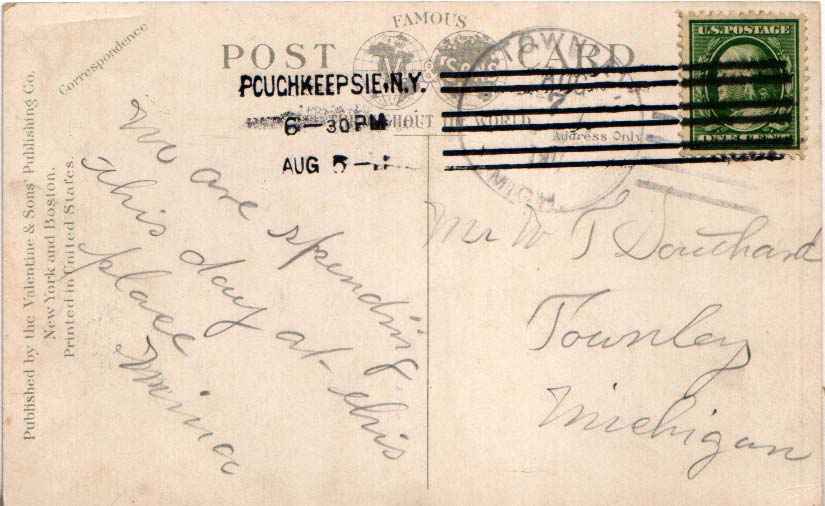 FAMOUS
POST CARD
V & Sons
THROUGHOUT THE WORLD
Correspondence
Address Only
U.S. POSTAGE
ONE CENT
POUGHKEEPSIE, N.Y.
6-30 PM
AUG 5
AUG
7
MICH.
Published by the Valentine & Sons' Publishing Co.
New York and Boston.
Printed in United States.
We are spending
this day at this
place
Mr W T Southard
Townley
Michigan